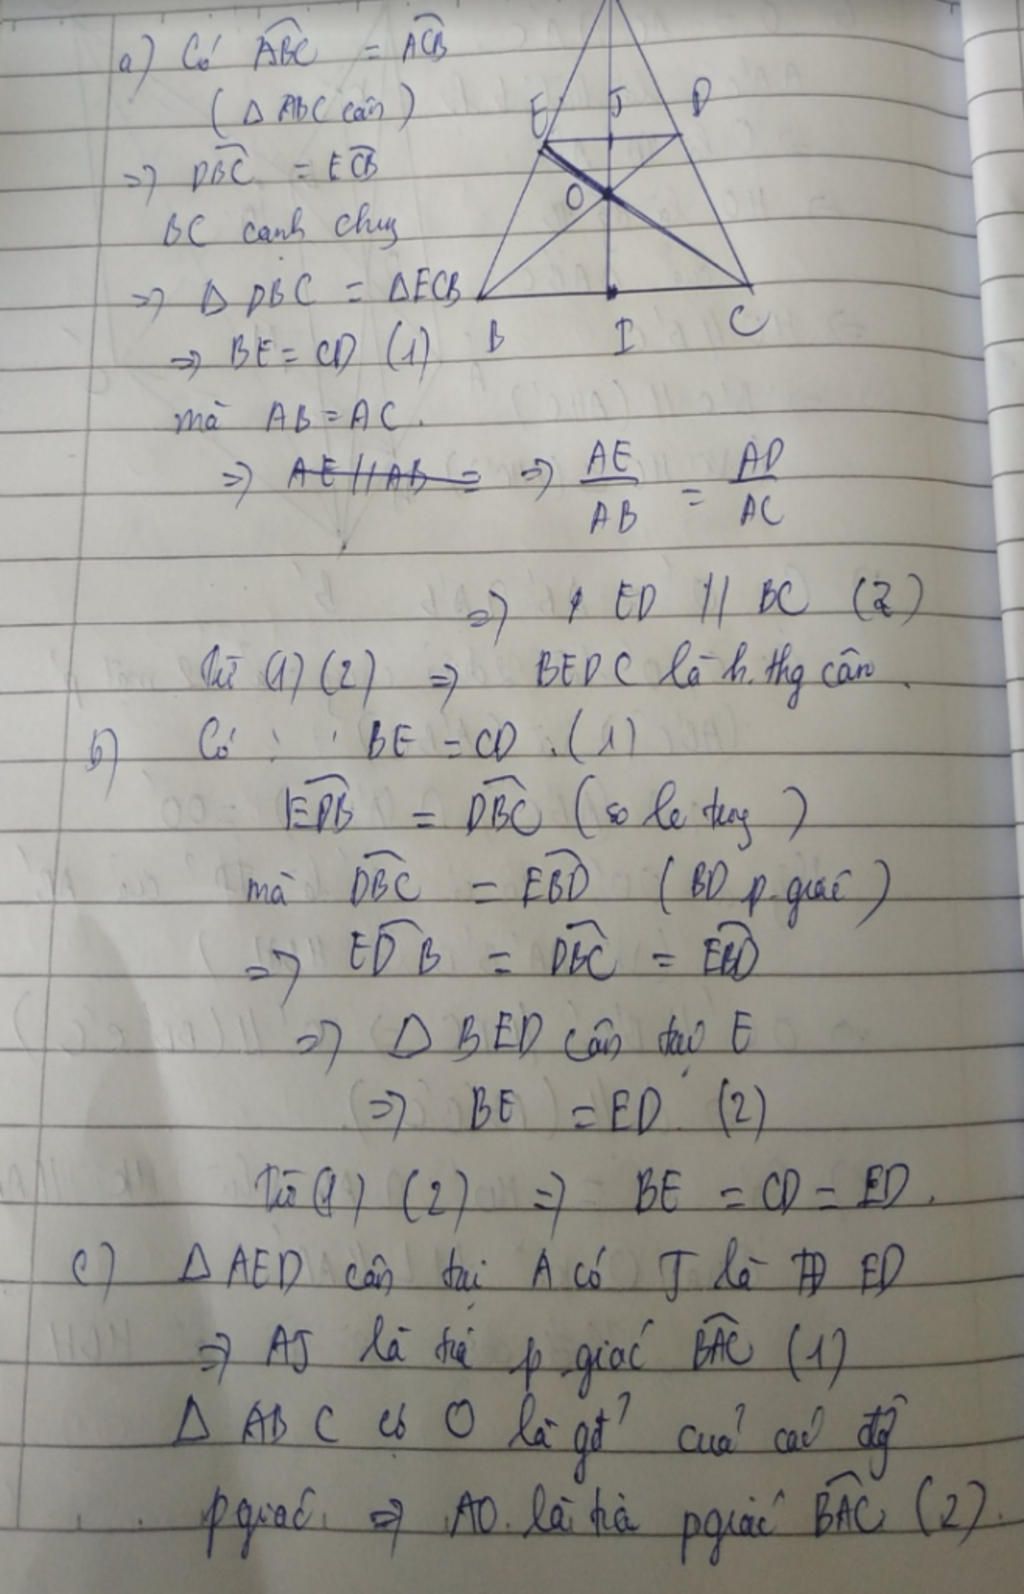 a) Có ABC = ACB
(Δ ABC cân)
=> DBC = ECB
BC cạnh chung
=> Δ DBC = ΔECB
=> BE = CD (1)
mà AB = AC.
=> AE // AB = => AE/AB = AD/AC
=> ED // BC (2)
Từ (1) (2) => BEDC là h.thg cân.
E J D
O
B I C
b) Có: BE = CD. (1)
EDB = DBC (so le trong)
mà DBC = EBD (BD p.giác)
=> EDB = DBC = EBD
=> Δ BED cân tại E
=> BE = ED. (2)
Từ (1) (2) => BE = CD = ED.
c) Δ AED cân tại A có J là TĐ ED
=> AJ là tia p.giác BAC (1)
Δ ABC có O là gđ của các đg
pgiác. => AO là tia pgiác BAC (2).